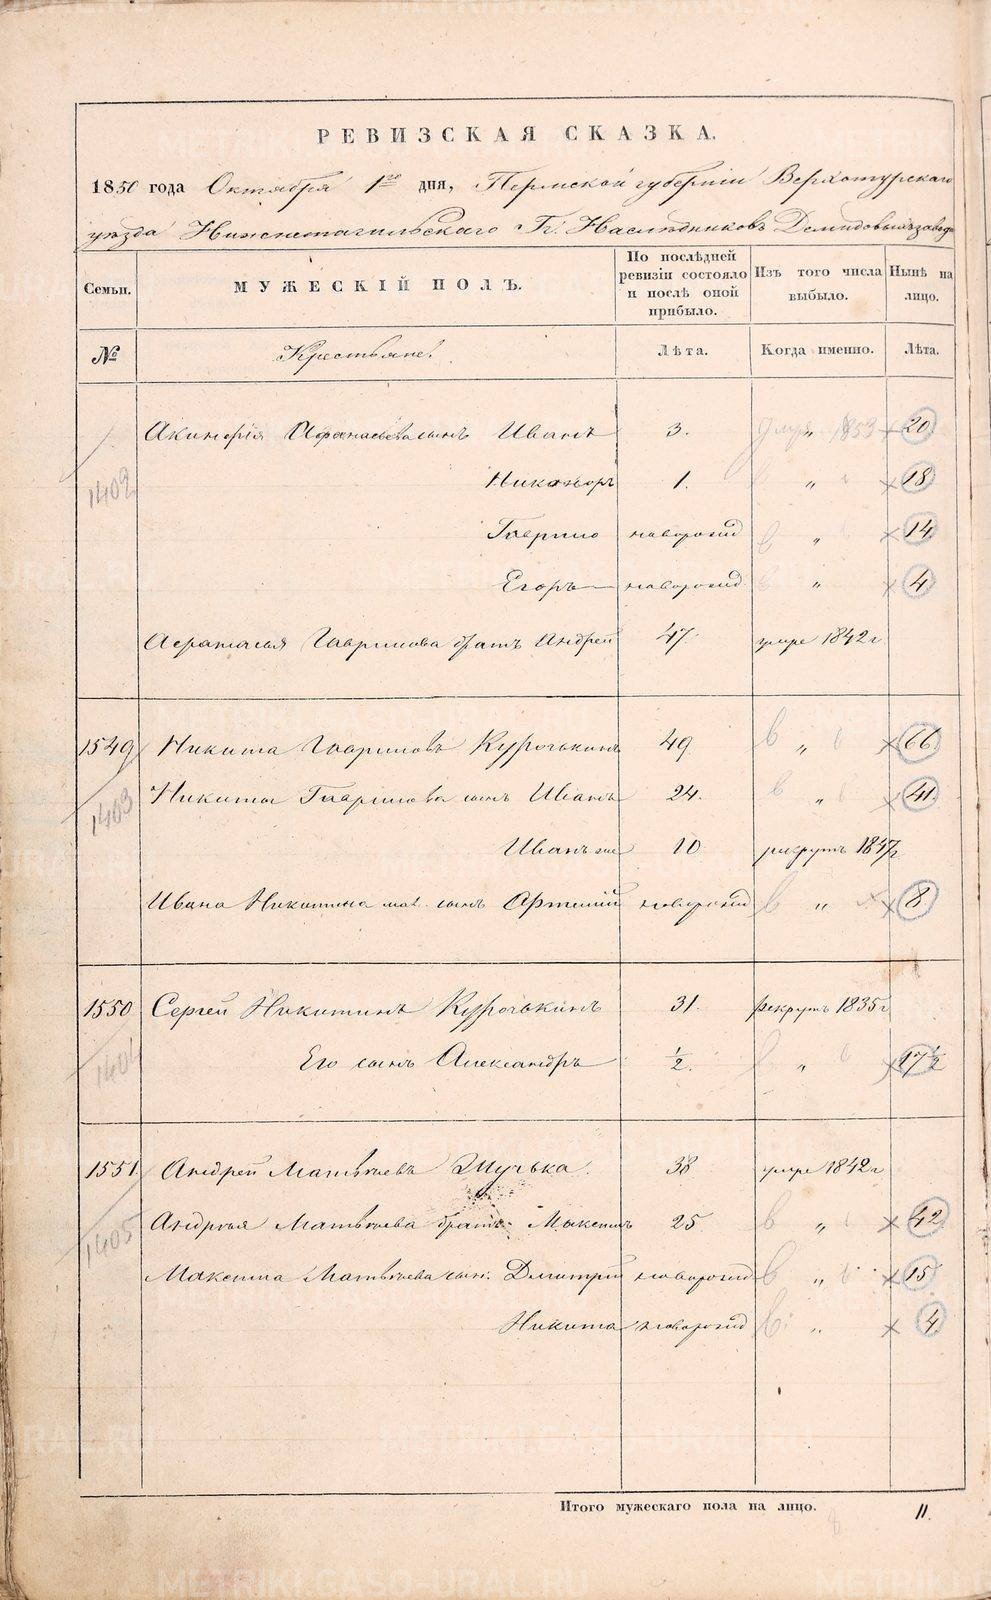 РЕВИЗСКАЯ СКАЗКА.
1850 года Октября 1го дня, Пермской губернiи Верхотурскаго
уѣзда Нижнетагильскаго Гг. Наслѣдниковъ Демидовыхъ завода
Семьи. МУЖЕСКIЙ ПОЛЪ. По послѣдней ревизiи состояло и послѣ оной прибыло. Изъ того числа выбыло. Нынѣ на лицо.
№ Крестьяне. Лѣта. Когда именно. Лѣта.
Акинфiя Афанасьева сынъ Иванъ 3. умре 1853 " 20
1402 Никаноръ 1. " 18
Гаврило новорожд " 14
Егоръ новорожд. " 4
Гаврилова братъ Андрей 47. умре 1842 г
1549 Никита Гавриловъ Курочькинъ 49 " 66
1403 Никиты Гаврилова сынъ Иванъ 24. " 41.
Иванъ же 10 рекрутъ 1847 г
Ивана Никитина сынъ Артемiй новорожд " 8
1550 Сергей Никитинъ Курочькинъ 31. рекрутъ 1835 г
1404 Его сынъ Александръ ½. " 17½
1551. Андрей Матвѣевъ Щучька. 38 умре 1842 г
1405 Андрея Матвѣева братъ Максимъ 25. " 42
Максима Матвѣева сын: Дмитрiй новорожд " 15
Никита новорожд " 4
Итого мужескаго пола на лицо. 11.
METRIKI.GASO-URAL.RU